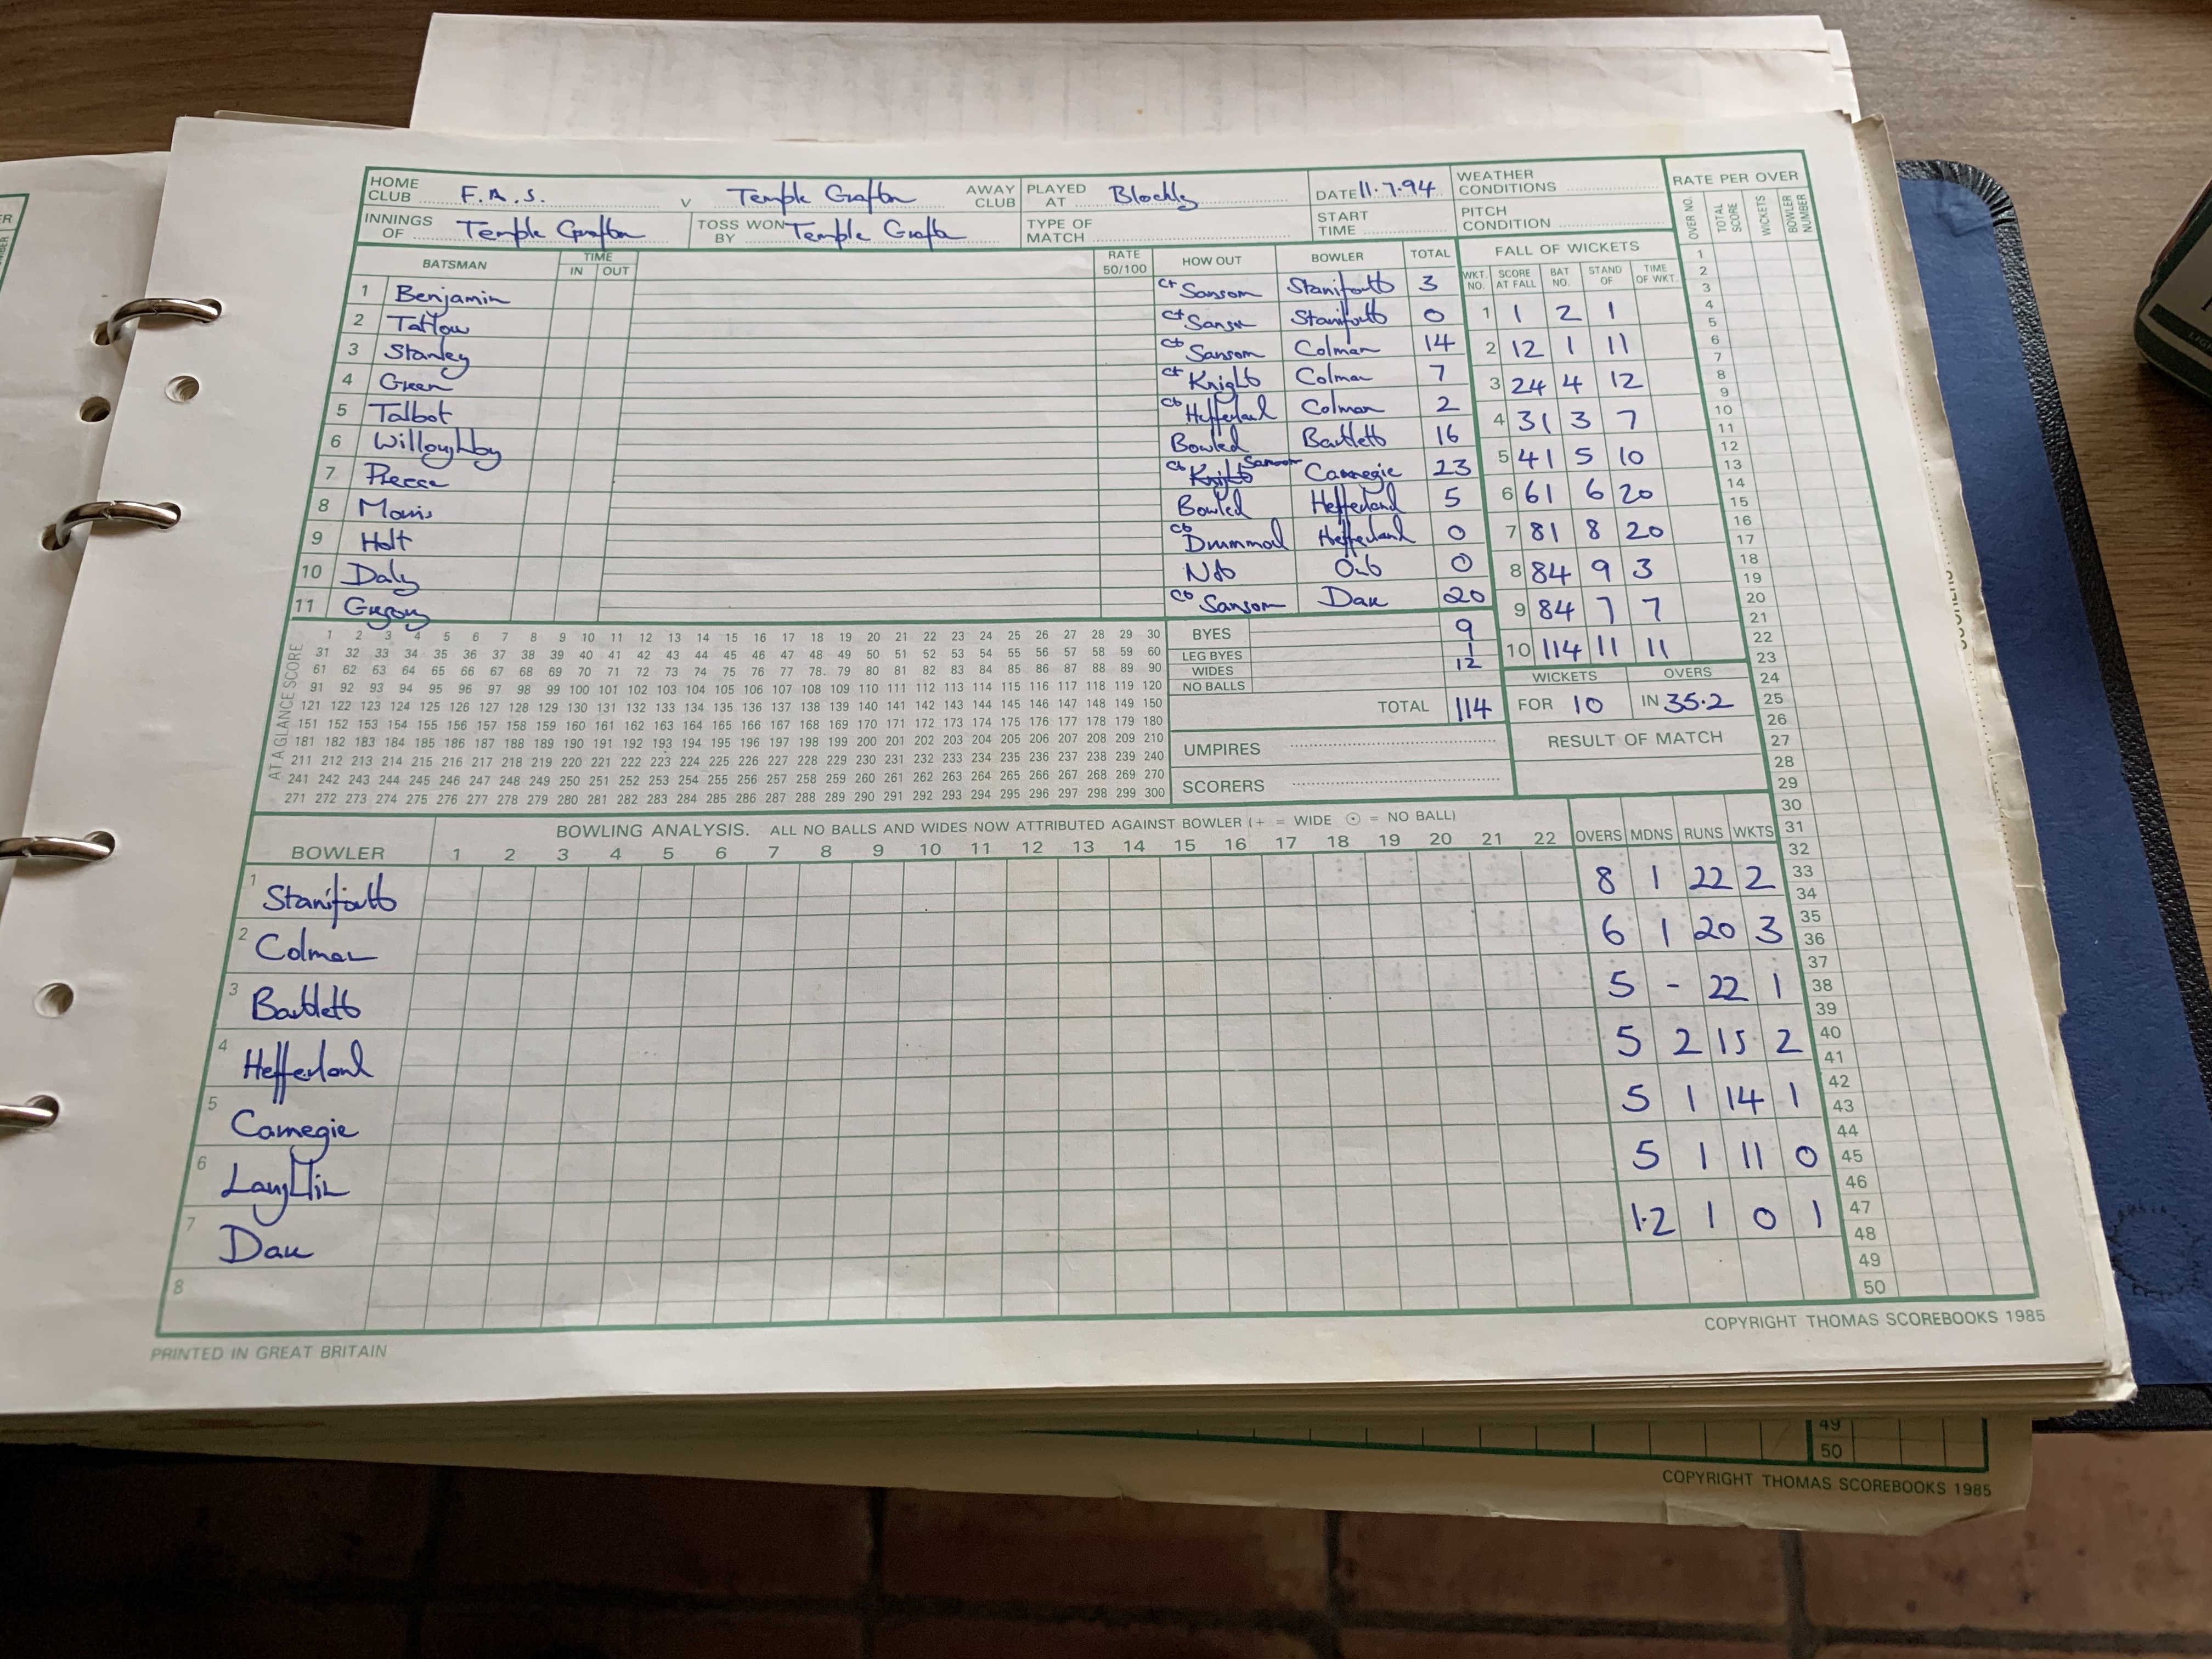 HOME CLUB F.A.S. v Temple Grafton AWAY CLUB PLAYED AT Blockly DATE 11.7.94 WEATHER CONDITIONS RATE PER OVER
INNINGS OF Temple Grafton TOSS WON BY Temple Grafton TYPE OF MATCH START TIME PITCH CONDITION OVER NO. TOTAL SCORE WICKETS BOWLER NUMBER
BATSMAN TIME IN OUT RATE 50/100 HOW OUT BOWLER TOTAL FALL OF WICKETS
WKT. NO. SCORE AT FALL BAT NO. STAND OF TIME OF WKT.
1 Benjamin ct Sansom Staniforth 3
2 Tatlow ct Sansom Staniforth 0
3 Stanley ct Sansom Colman 14
4 Green ct Knight Colman 7
5 Talbot ct Hefferland Colman 2
6 Willoughby Bowled Bartlett 16
7 Preece ct Knight Sansom Carnegie 23
8 Morris Bowled Hefferland 5
9 Holt ct Drummond Hefferland 0
10 Daly Not Out 0
11 Gregory ct Sansom Dau 20
1 1 2 1
2 12 1 11
3 24 4 12
4 31 3 7
5 41 5 10
6 61 6 20
7 81 8 20
8 84 9 3
9 84 7 7
10 114 11 11
BYES 9
LEG BYES 1
WIDES 12
NO BALLS
TOTAL 114
WICKETS OVERS
FOR 10 IN 35.2
UMPIRES
SCORERS
RESULT OF MATCH
AT A GLANCE SCORE
1 2 3 4 5 6 7 8 9 10 11 12 13 14 15 16 17 18 19 20 21 22 23 24 25 26 27 28 29 30
31 32 33 34 35 36 37 38 39 40 41 42 43 44 45 46 47 48 49 50 51 52 53 54 55 56 57 58 59 60
61 62 63 64 65 66 67 68 69 70 71 72 73 74 75 76 77 78 79 80 81 82 83 84 85 86 87 88 89 90
91 92 93 94 95 96 97 98 99 100 101 102 103 104 105 106 107 108 109 110 111 112 113 114 115 116 117 118 119 120
121 122 123 124 125 126 127 128 129 130 131 132 133 134 135 136 137 138 139 140 141 142 143 144 145 146 147 148 149 150
151 152 153 154 155 156 157 158 159 160 161 162 163 164 165 166 167 168 169 170 171 172 173 174 175 176 177 178 179 180
181 182 183 184 185 186 187 188 189 190 191 192 193 194 195 196 197 198 199 200 201 202 203 204 205 206 207 208 209 210
211 212 213 214 215 216 217 218 219 220 221 222 223 224 225 226 227 228 229 230 231 232 233 234 235 236 237 238 239 240
241 242 243 244 245 246 247 248 249 250 251 252 253 254 255 256 257 258 259 260 261 262 263 264 265 266 267 268 269 270
271 272 273 274 275 276 277 278 279 280 281 282 283 284 285 286 287 288 289 290 291 292 293 294 295 296 297 298 299 300
BOWLING ANALYSIS. ALL NO BALLS AND WIDES NOW ATTRIBUTED AGAINST BOWLER (+ = WIDE ⊙ = NO BALL)
BOWLER 1 2 3 4 5 6 7 8 9 10 11 12 13 14 15 16 17 18 19 20 21 22 OVERS MDNS RUNS WKTS
1 Staniforth 8 1 22 2
2 Colman 6 1 20 3
3 Bartlett 5 - 22 1
4 Hefferland 5 2 15 2
5 Carnegie 5 1 14 1
6 Laughlin 5 1 11 0
7 Dau 1.2 1 0 1
8
1
2
3
4
5
6
7
8
9
10
11
12
13
14
15
16
17
18
19
20
21
22
23
24
25
26
27
28
29
30
31
32
33
34
35
36
37
38
39
40
41
42
43
44
45
46
47
48
49
50
PRINTED IN GREAT BRITAIN
COPYRIGHT THOMAS SCOREBOOKS 1985
49
50
COPYRIGHT THOMAS SCOREBOOKS 1985